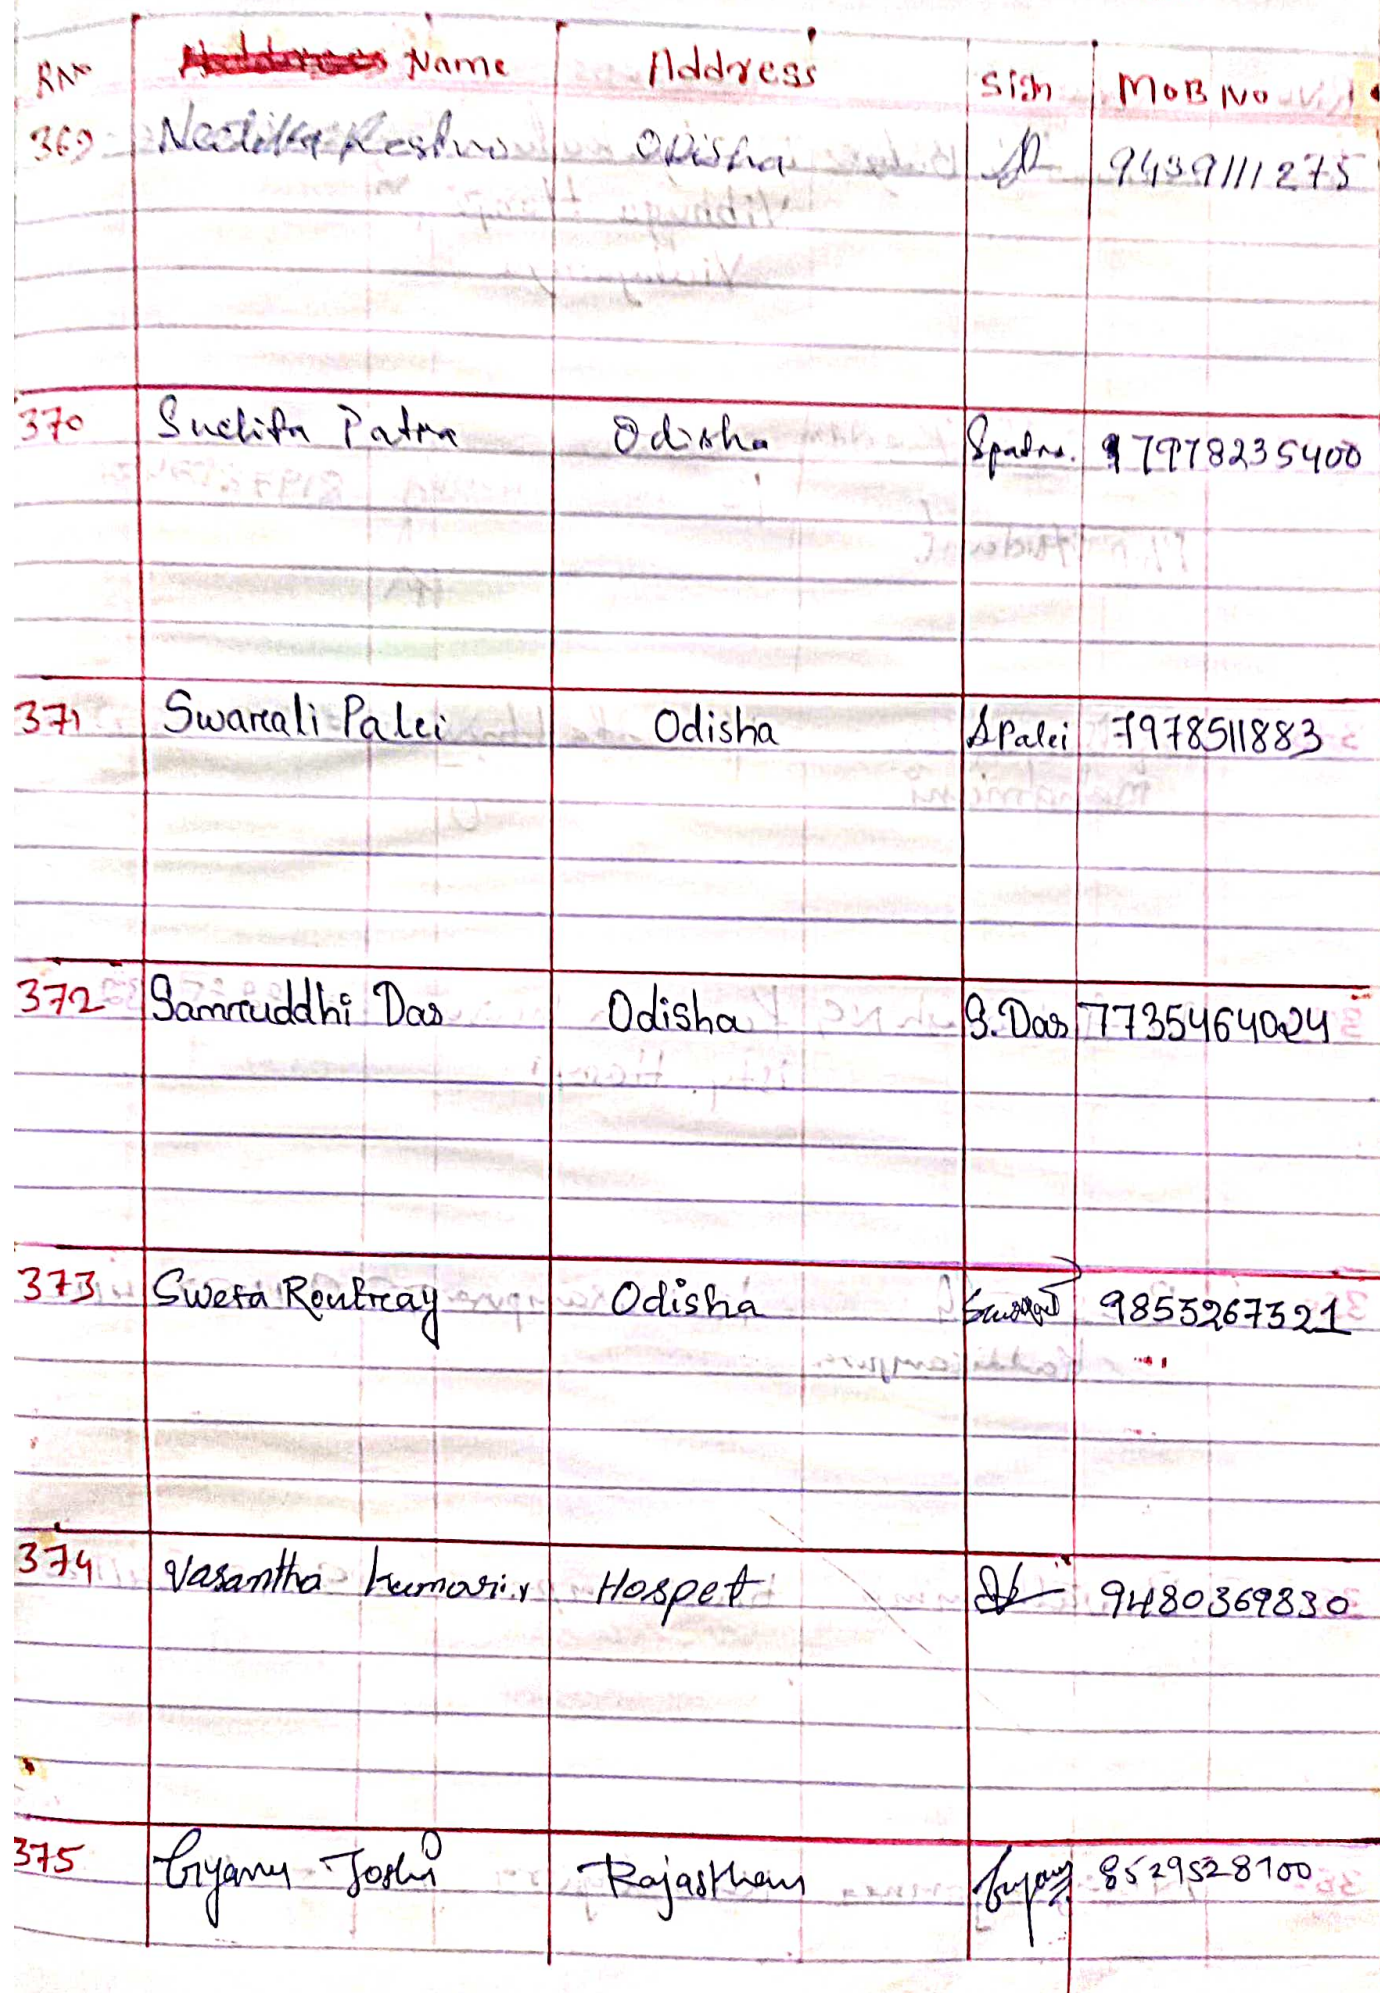 RNo Name Address Sign MOB NO
369 Odisha 9439111275
370 Sudipta Patra Odisha Spatra. 7978235400
371 Swarali Palei Odisha SPalei 7978511883
372 Samruddhi Das Odisha S.Das 7735464024
373 Sweta Routray Odisha 9853267321
374 Vasantha kumari.v Hospet 9480369830
375 Joshi Rajasthan 8529528100